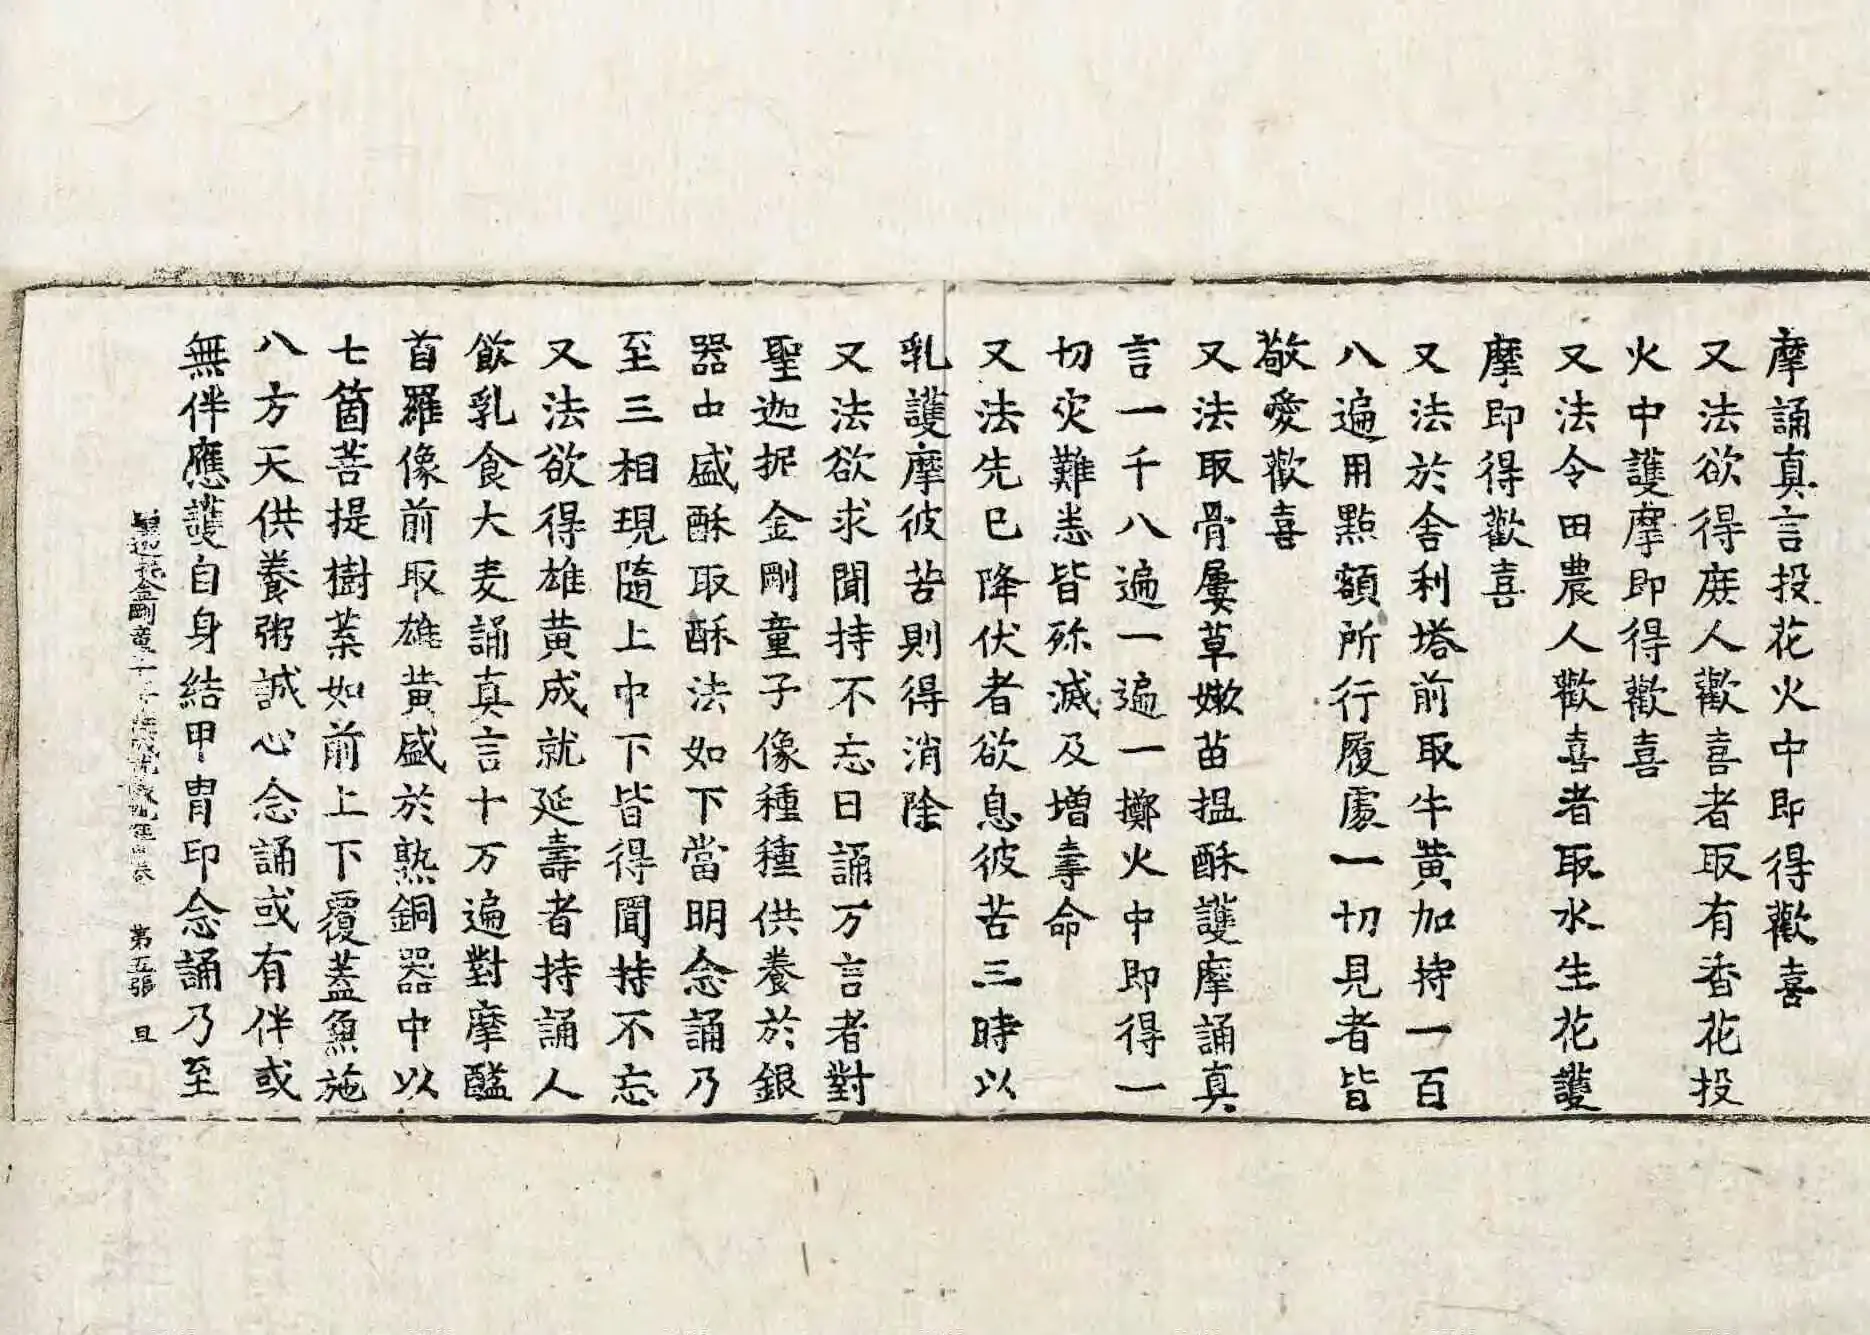 摩誦真言投花火中即得歡喜
又法欲得庶人歡喜者取有香花投
火中護摩即得歡喜
又法令田農人歡喜者取水生花護
摩即得歡喜
又法於舍利塔前取牛黄加持一百
八遍用點額所行履處一切見者皆
敬愛歡喜
又法取骨屢草嫩苗揾酥護摩誦真
言一千八遍一遍一擲火中即得一
切灾難悉皆殄滅及增壽命
又法先已降伏者欲息彼苦三時以
乳護摩彼苦則得消除
又法欲求聞持不忘日誦万言者對
聖迦抳金剛童子像種種供養於銀
器中盛酥取酥法如下當明念誦乃
至三相現隨上中下皆得聞持不忘
又法欲得雄黄成就延壽者持誦人
飲乳食大麦誦真言十万遍對摩醯
首羅像前取雄黄盛於熟銅器中以
七箇菩提樹葉如前上下覆蓋魚施
八方天供養粥誠心念誦或有伴或
無伴應護自身結甲冑印念誦乃至
聖迦抳金剛童子 成就儀軌經 第五張 且